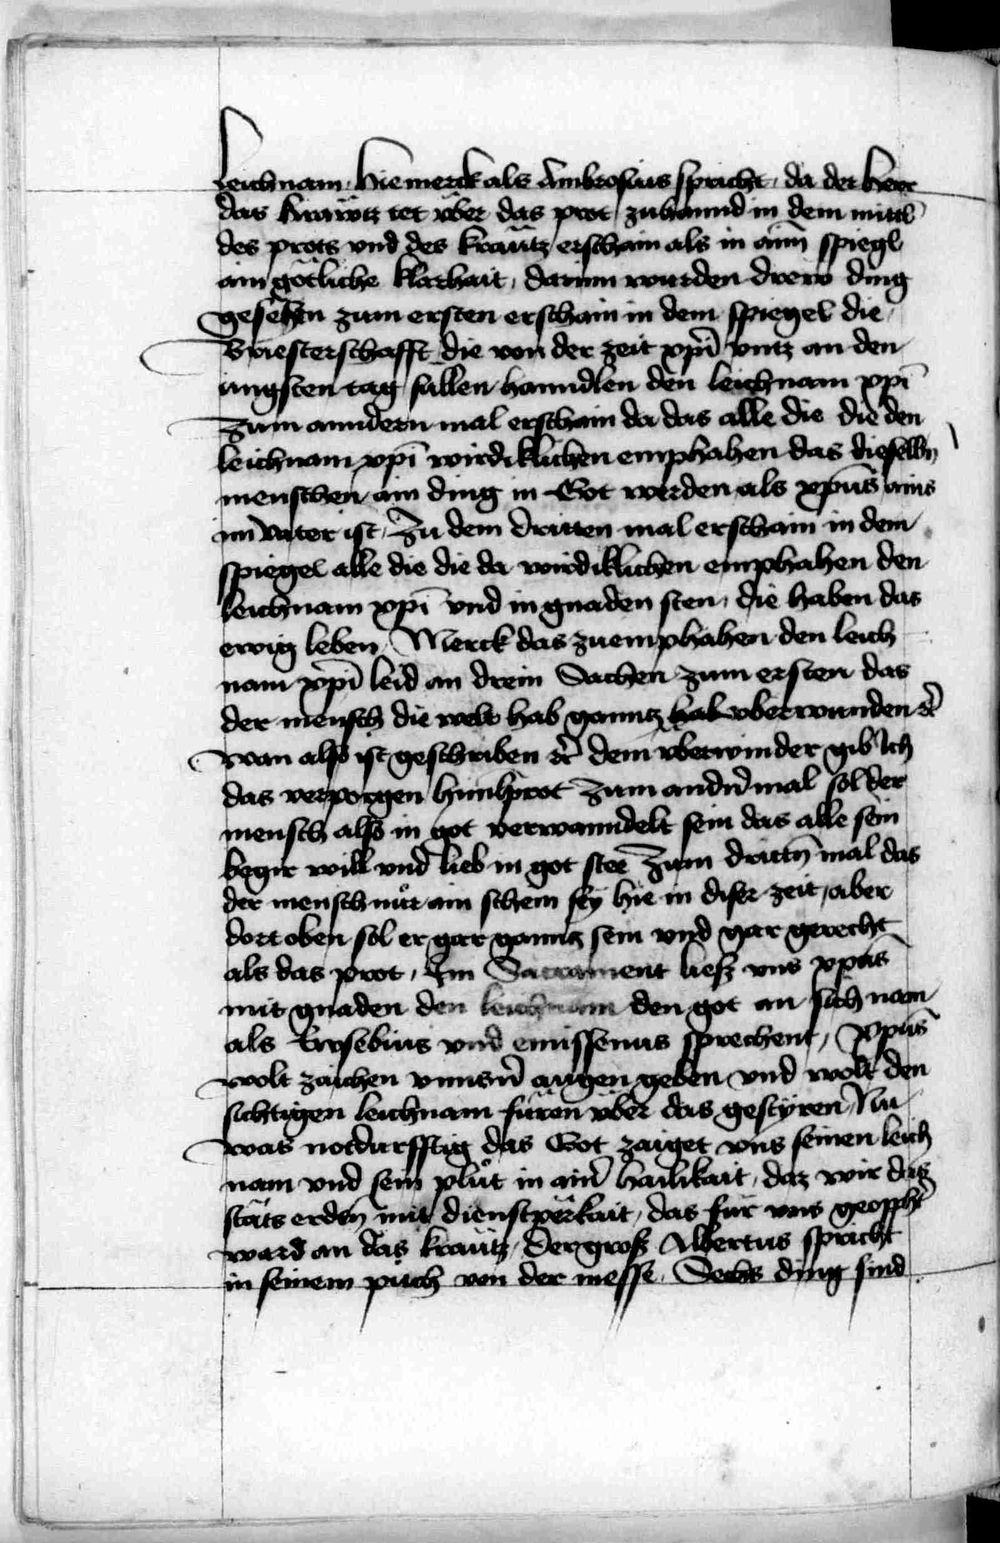 leichnam / hie merck als Ambrosius spricht / da der herr
das Kräwtz tet vber das prot / zuhannd in dem mittl
des prots vnd des kräutz erschain als in aim̄ spiegl
ain götliche klarhait / darinn wurden drew ding
gesehen zum ersten erschain in dem spiegel die
Briesterschafft die von der zeit xp̄i vntz an den
iungsten tag sullen hanndlen den leichnam xp̄i
Zum anndern mal erschain da das alle die die den
leichnam xp̄i wirdiklichen emphahen das dieselbn̄
menschen ain ding in Got werden als xp̄us ains
im vater ist / Zu dem dritten mal erschain in dem
spiegel alle die die da wirdiklichen emphahen den
leichnam xp̄i vnd in gnaden sten / die haben das
ewig leben / Merck das zu emphahen den leich
nam xp̄i leid an drein Sachen zum ersten das
der mensch die welt hab gantz hab vberwunden
wan also ist geschriben dem vberwinder gib Ich
das verporgen himlprot Zum andn̄ mal sol der
mensch also in got verwanndelt sein das alle sein
begir will vnd lieb in got stee Zum dritn̄ mal das
der mensch nur ain schein sey hie in diser zeit / aber
dort oben sol er gar gantz sein vnd gar gerecht
als das prot / Im Sacrament liesz vns xp̄us
mit gnaden den leichnam den got an sich nam
als Ewsebius vnd emissenus sprechent / Xp̄us
wolt zaichen vnnsn̄ augen geben vnd wolt den
sichtigen leichnam füren vber das gestyren / Nu
was notdurfftig das Got zaiget vns seinen leich
nam vnd sein plůt in ain̄ hailikait / daz wir das
stäts erdn̄ mit dienstperkait / das für vns geopph̄t
ward an das kräutz / Der grosz Albertus spricht
in seinem půch von der messe / Sechs ding sind